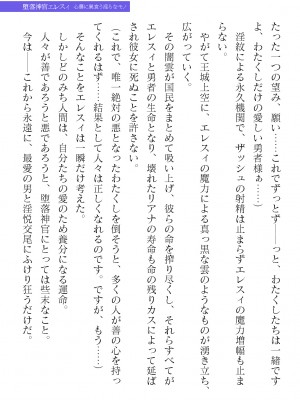 堕落神官エレスィ 心臓に巣食う淫らなモノ
たった一つの望み、願い……これでずっと――っと、わたくしたちは一緒です
よ、わたくしだけの愛しい勇者様ぁ……）
淫紋による永久機関で、ザッシュの射精は止まらずエレスィの魔力増幅も止ま
らない。
やがて王城上空に、エレスィの魔力による真っ黒な雲のようなものが湧き立ち、
広がっていく。
その闇雲が国民をまとめて吸い上げ、彼らの命を搾り尽くし、それらすべてが
エレスィと勇者の生命となり、壊れたリアナの寿命も命の残りカスによって延ば
され彼女に死ぬことを許さない。
（これで、唯一絶対の悪となったわたくしを倒そうと、多くの人が善の心を持っ
てくれるはず……結果として人々は正しくなれるのです。ですが、もう……）
そんなことをエレスィは一瞬だけ考えた。
しかしどのみち人間は、自分たちの愛のため養分になる運命。
人が善であろうと悪であろうと、堕落神官にとっては些末なこと。
今は――これから永遠に、最愛の男と淫悦交尾にふけり狂うだけだ。